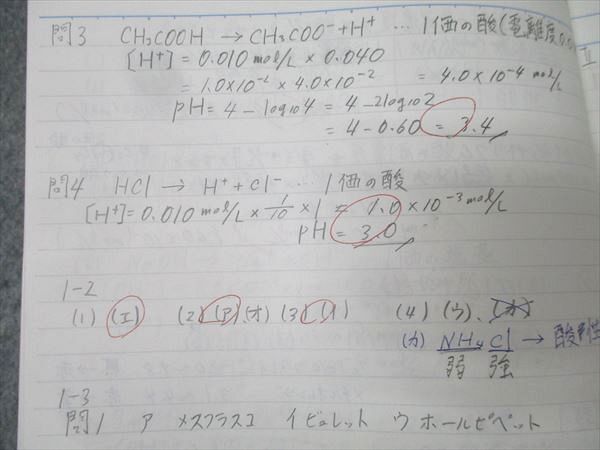 問3 CH₃COOH → CH₃COO⁻ + H⁺ … 1価の酸(電離度0.0
[H⁺] = 0.010 mol/L × 0.040
= 1.0×10⁻² × 4.0×10⁻² = 4.0×10⁻⁴ mol/L
pH = 4 − log₁₀4 = 4 − 2log₁₀2
= 4 − 0.60 = 3.4
問4 HCl → H⁺ + Cl⁻ … 1価の酸
[H⁺] = 0.010 mol/L × 1/10 × 1 = 1.0 × 10⁻³ mol/L
pH = 3.0
1-2
(1) (エ) (2) (ア)、(オ) (3) (イ) (4) (ウ)、(カ)
(カ) NH₄Cl → 酸性
弱 強
1-3
問1 ア メスフラスコ イ ビュレット ウ ホールピペット